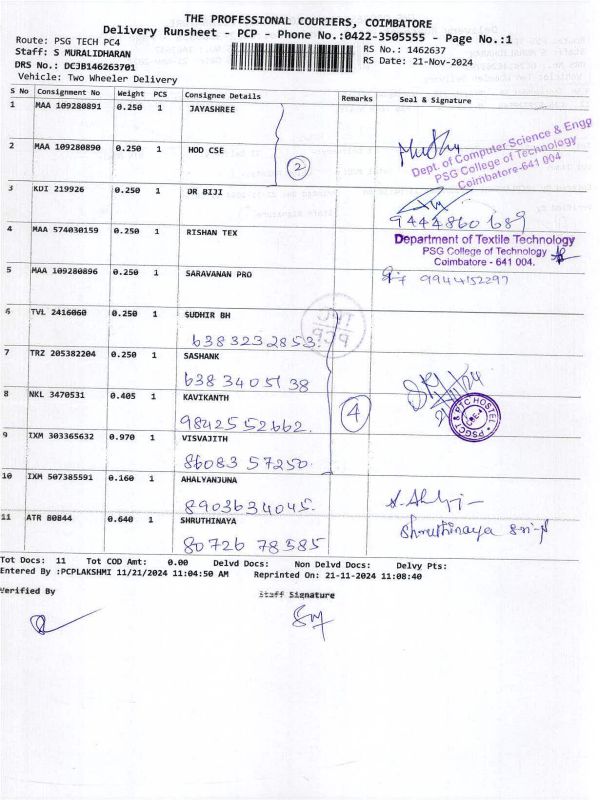 THE PROFESSIONAL COURIERS, COIMBATORE
Delivery Runsheet - PCP - Phone No.:0422-3505555 - Page No.:1
Route: PSG TECH PC4
RS No.: 1462637
Staff: S MURALIDHARAN
RS Date: 21-Nov-2024
DRS No.: DCJB146263701
Vehicle: Two Wheeler Delivery
S No Consignment No Weight PCS Consignee Details Remarks Seal & Signature
1 MAA 109280891 0.250 1 JAYASHREE
2 MAA 109280890 0.250 1 HOD CSE
2
Dept. of Computer Science & Engg
PSG College of Technology
Coimbatore-641 004
3 KDI 219926 0.250 1 DR BIJI
9444860689
4 MAA 574030159 0.250 1 RISHAN TEX
Department of Textile Technology
PSG College of Technology
Coimbatore - 641 004.
5 MAA 109280896 0.250 1 SARAVANAN PRO
9944152297
6 TVL 2416060 0.250 1 SUDHIR BH
6383232853.
7 TRZ 205382204 0.250 1 SASHANK
6383405138
8 NKL 3470531 0.405 1 KAVIKANTH
9842552662.
4
PSGCT & PTC HOSTEL
9 IXM 303365632 0.970 1 VISVAJITH
86083 57250.
10 IXM 507385591 0.160 1 AHALYANJUNA
8903634045.
11 ATR 80844 0.640 1 SHRUTHINAYA
80726 78585
Shruthinaya
Tot Docs: 11 Tot COD Amt: 0.00 Delvd Docs: Non Delvd Docs: Delvy Pts:
Entered By :PCPLAKSHMI 11/21/2024 11:04:50 AM Reprinted On: 21-11-2024 11:08:40
Verified By Staff Signature